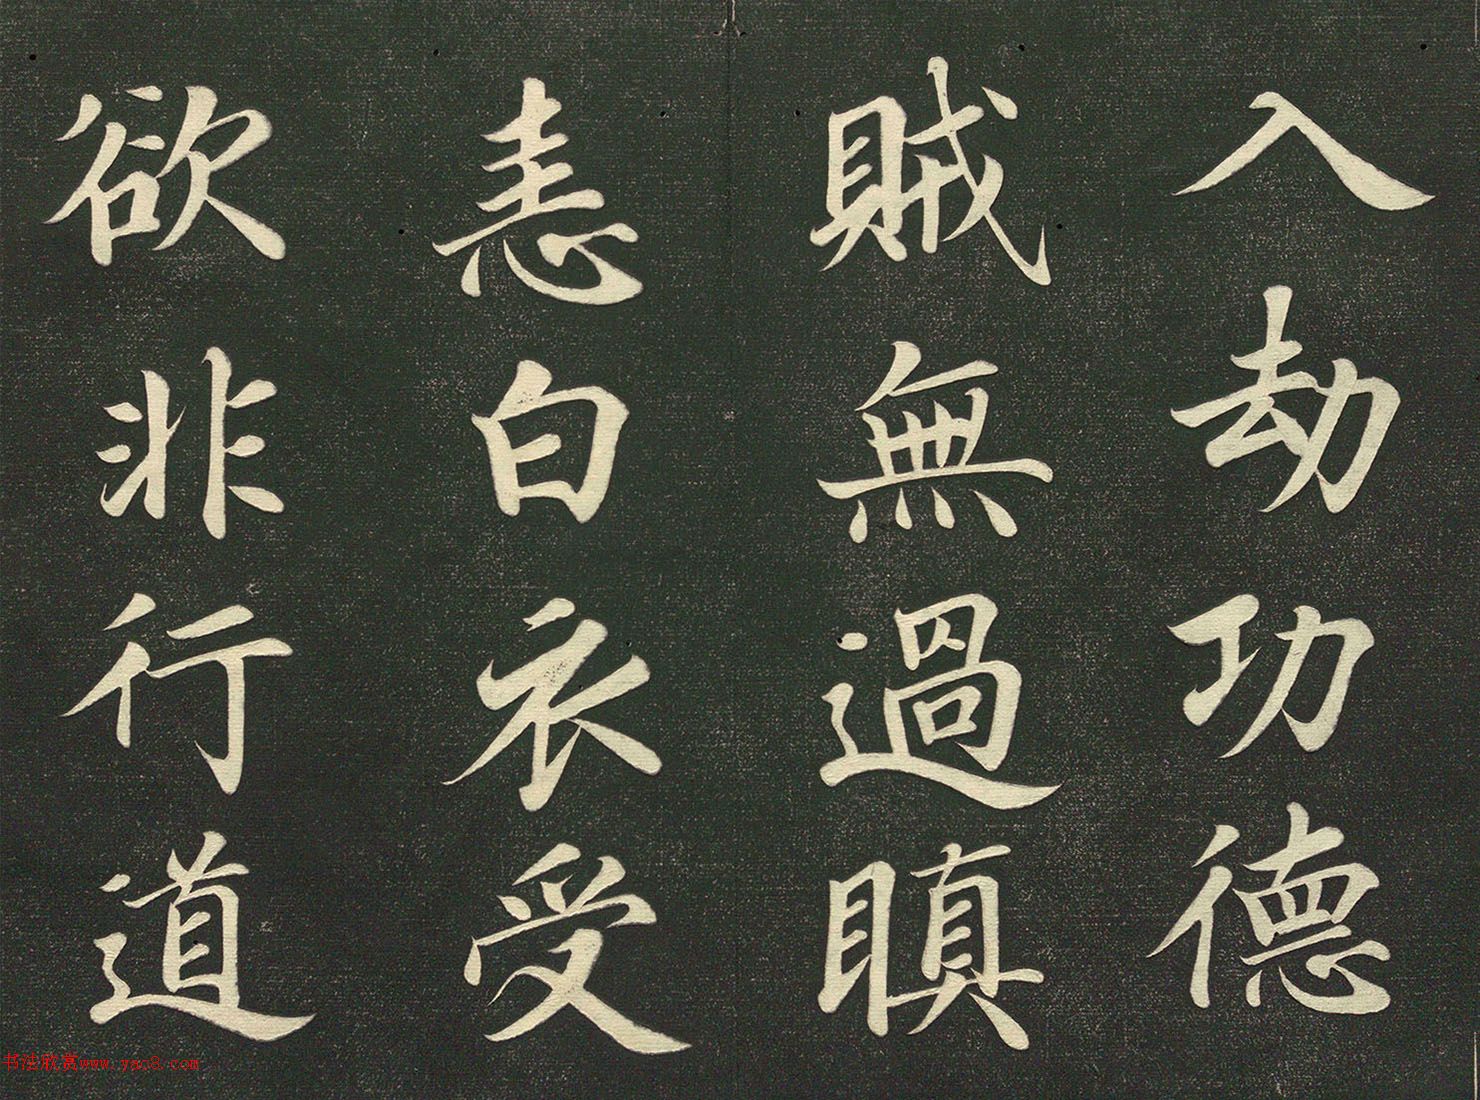 入劫功德
賊無過瞋
恚白衣受
欲非行道
书法欣赏www.yac8.com